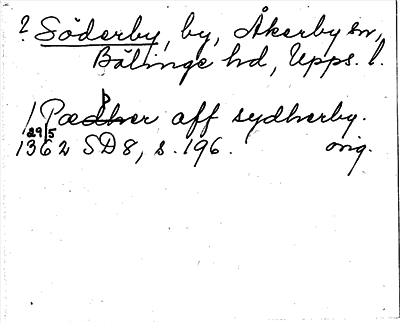 ? Söderby, by, Åkerby sn,
Bälinge hd, Upps. l.
þ
/Pædher aff sydherby.
29/5
1362 SD 8, s. 196. orig.